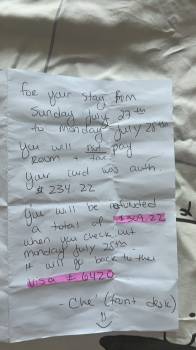 For your stay from
Sunday July 27th
to Monday July 28th
You will not pay
room + tax.
Your card was auth.
$234.22
You will be refunded
a total of $309.22
when you check out
Monday July 28th.
It will go back to the
Visa # 6420
- Che (front desk)